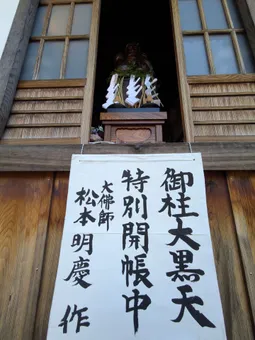 御柱大黒天
特別開帳中
大佛師
松本明慶 作